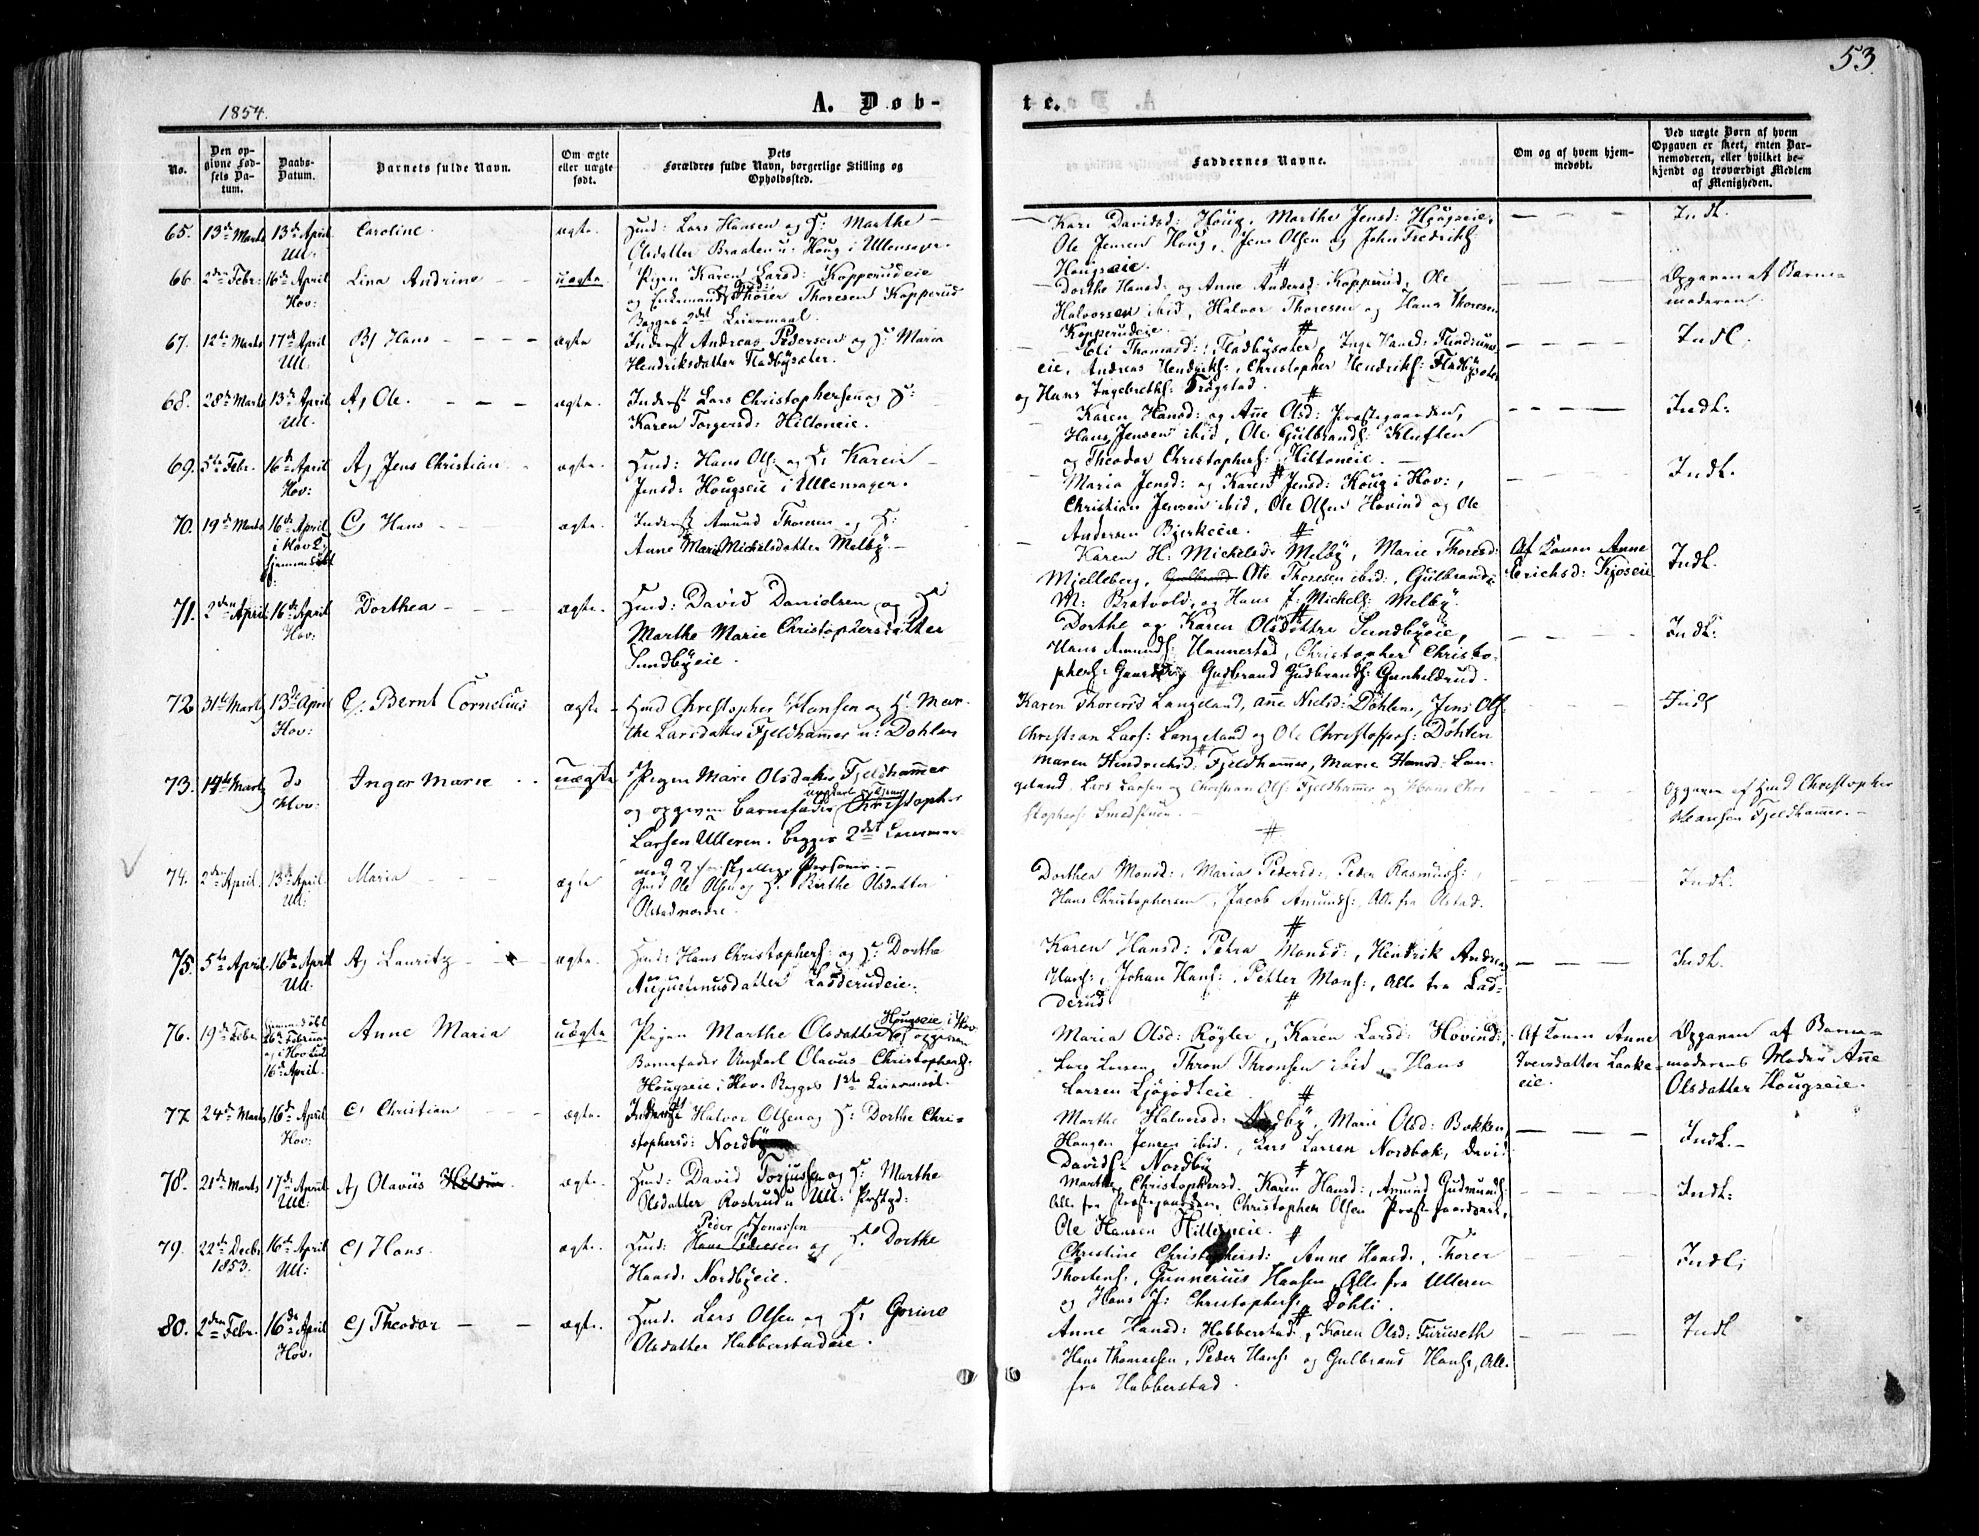 53
1854.
A. Døb-
te.
No.
Den op-
givne Fød-
sels Da-
tum.
Daabs-
Datum.
Barnets fulde Navn.
Om ægte
eller uægte
født.
Dets
Forældres fulde Navn, borgerlige Stilling og
Opholdssted.
Faddernes Navne.
Om og af hvem hjem-
medøbt.
Ved uægte Børn af hvem
Opgaven er skeet, enten Bar-
nemoderen, eller hvilket be-
kjendt og troværdigt Medlem
af Menigheden.
65. 13de Marts 13de April Ull: Caroline. ægte.
Huusm: Lars Hansen og H: Marthe
Olsdatter Braaten u: Houg i Ullensager.
Kari Davidsd: Houg, Marthe Jensd: Hougseie,
Ole Jensen Houg, Jens Olsen og John Fredriks
Hougseie.
Indl.
66. 2den Febr: 16de April Hov: Lina Andrine uægte.
Pigen Karen Larsd: Kopperudeie
og Enkemand Thorer Thoresen Kopperud
Begges 2det Leiermaal.
Dorthe Hansd: og Anne Andersd: Kopperud, Ole
Halvorsen ibid, Halvor Thoresen og Hans Thoresen
Kopperudeie.
Opgaven af Barne-
moderen.
67. 12te Marts 17de April Ull: Hans ægte
Inderst Andreas Pedersen og H: Maria
Hendriksdatter Fladbysæter.
Thomasd: Fladbysæter, Inge Hansd:
eie, Andreas Hendriks:, Christopher Hendriks: Fladbysæter
og Hans Ingebreths: Trøgstad.
Indl.
68. 28de Marts 13de April Ull: Ole. ægte.
Inderst Lars Christophersen og H:
Karen Torgersd: Hiltoneie.
Karen Hansd: og Anne Olsd: Præstegaarden,
Hans Jensen ibid, Ole Gulbrands: Kluften
og Theodor Christophers: Hiltoneie.
Indl:
69. 5te Febr. 16de April Hov: Jens Christian ægte.
Huusm: Hans Ols: og H: Karen
Jensd: Hougseie i Ullensager.
Maria Jensd: og Karen Jensd: Houg i Hov:,
Christian Jensen ibid, Ole Olsen Hovind og Ole
Andersen Bjerkeeie.
Indl.
70. 19de Marts 16de April i Hov Hans ægte.
Inderst Amund Thoresen og H:
Anne Marie Mickelsdatter Melby.
Karen H. Mickelsd: Melby, Marie Thoresd:
Mjelleberg, Ole Thoresen ibid:, Gulbrand
M: Bratvold og Hans J: Mickels: Melby.
Af Konen Anne
Erichsd: Kjoseie
Indl.
71. 2den April 16de April Hov: Dorthea ægte.
Huusm: David Davidsen og H:
Marthe Marie Christophersdatter
Sundbyeie.
Dorthe og Karen Olsdøttre Sundbyeie,
Hans Amunds: Hannestad, Christopher Christo-
phers: Gudbrand Gudbrands: Gunhildrud.
Indl:
72. 31te Marts 13de April Hov: Bernt Cornelius ægte
Huusm Christopher Hansen og H: Mar-
the Larsdatter Fjeldhammer u: Døhlen
Karen Thoresd Langeland, Anne Nielsd: Døhlen, Jens Ols:
Christian Lars: Langeland og Ole Christophers: Døhlen
Indl
73. 14de Marts do Hov: Inger Marie uægte
Pigen Mari Olsdatter Fjeldhammer
og opgiven Barnefader Christopher
Larsen Ulleren. Begges 2det Leiermaal
med 2 forskjellige Personer.
Maren Hendrichsd: Fjeldhammer, Marie Hansd: Lan-
geland, Lars Larsen og Christian Ols: Fjeldhammer og Hans Chri
stophers: Smedstuen.
Opgaven af Huusm Christopher
Hansen Fjeldhammer.
74. 2den April. 13de April. Ull: Maria ægte
Gmd Ole Olsen og H: Birthe Olsdatter
Olstad nordre.
Dorthea Monsd:, Maria Pedersd:, Peder Rasmuss:,
Hans Christophersen, Jacob Amunds:, Alle fra Olstad.
Indl.
75. 5te April. 16de April Ull. Lauritz ægte.
Huusm: Hans Christophers: og H: Dorthe
Augustinusdatter Ladderudeie.
Karen Hansd: Petra Monsd:, Hendrik Andreas
Hans:, Johan Hans:, Petter Mons:, Alle fra Lad-
derud
Indl.
76. 19de Febr. hjemmedøbt 26de Februar og i Hov 16de April. Anne Maria uægte
Pigen Marthe Olsdatter Hougseie i Hov: og opgiven
Barnefader Ungkarl Olavus Christophers:
Hougseie i Hov. Begges 1ste Leiermaal.
Maria Olsd: Røgler, Karen Larsd: Hovind,
Lars Larsen, Thron Thronsen ibid, Hans
Larsen Ljøgodteie
Af Konen Anne
Iversdatter Laake-
eie.
Opgaven af Barne-
moderens Moder Anne
Olsdatter Hougseie.
77. 24de Marts 16de April Hov: Christian ægte.
Inderst Halvor Olsen og H: Dorthe Chri-
stophersd: Nordby
Marthe Halvorsd: Nordby, Marie Olsd: Bakken,
Haagen Jensen ibid., Lars Larsen Nordbak, David
Davids: Nordby
Indl.
78. 21de Marts 17de April Ull: Olavus ægte.
Huusm: David Torjussen og H: Marthe
Olsdatter Rostrud u Ull: Præstgd:
Marthe Christophersd: Karen Hansd:, Amund Gudmunds:
Alle fra Præstegaarden, Christopher Olsen Præstegaarden,
Ole Hansen Hiltoneie.
Indl:
79. 22de Decbr 1853. 16de April Ull: Hans. ægte.
Peder Jonassen
Huusm: Hans Pedersen og H: Dorthe
Hansd: Nordbyeie.
Christine Christophersd: Anne Hansd:, Thorer
Thostens:, Gunnerius Hansen Alle fra Ulleren
og Hans J: Christophers: Døhli.
Indl:
80. 2den Febr. 16de April Hov: Theodor ægte.
Huusm. Lars Olsen og H: Gorine
Olsdatter Habberstadeie.
Anne Hansd: Habberstad, Karen Olsd: Furuseth
Hans Thomassen, Peder Hans: og Gulbrand Hans:, Alle
fra Habberstad.
Indl